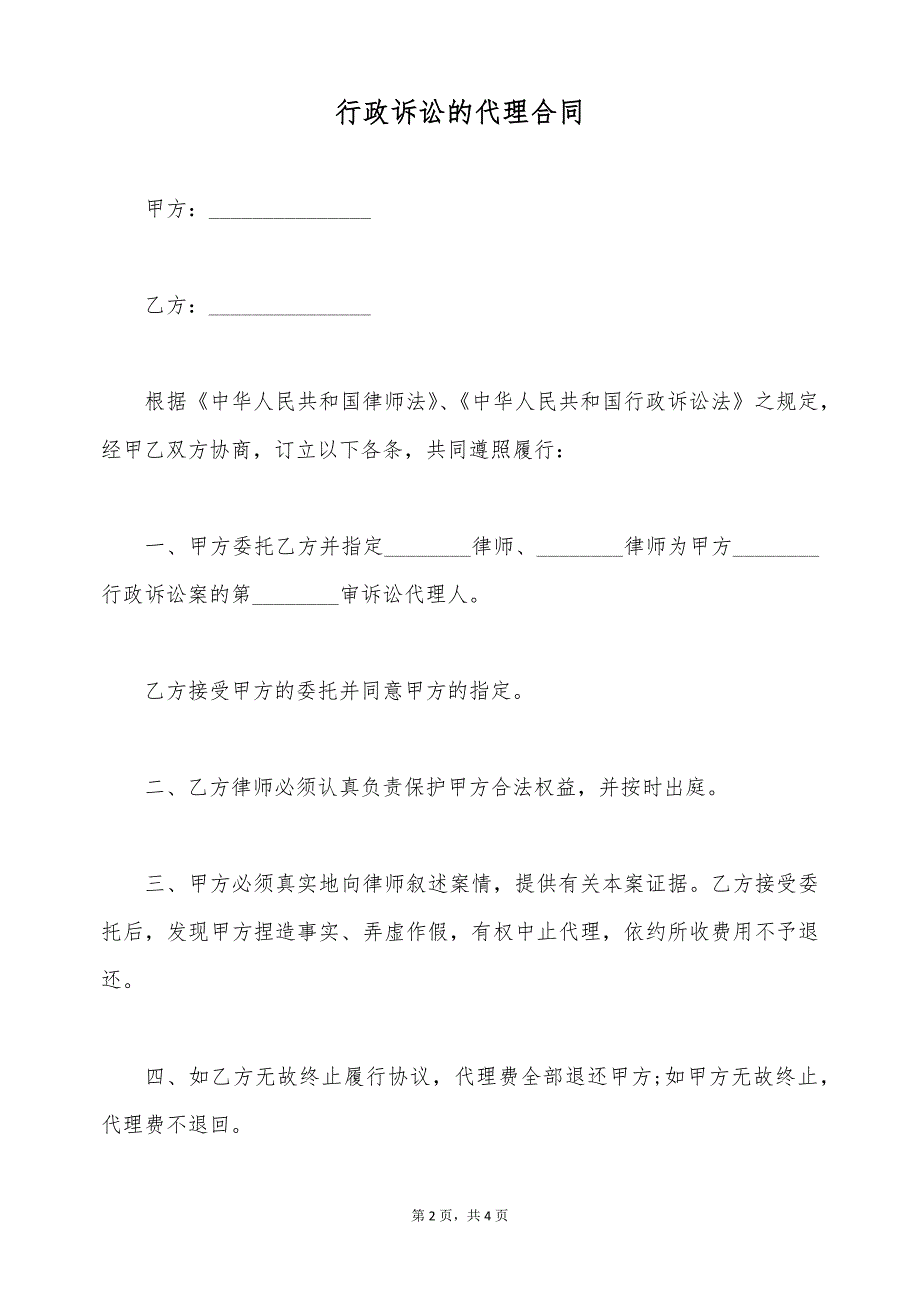 行政诉讼的代理合同
甲方：_______________
乙方：_______________
根据《中华人民共和国律师法》、《中华人民共和国行政诉讼法》之规定，
经甲乙双方协商，订立以下各条，共同遵照履行：
一、甲方委托乙方并指定________律师、________律师为甲方________
行政诉讼案的第________审诉讼代理人。
乙方接受甲方的委托并同意甲方的指定。
二、乙方律师必须认真负责保护甲方合法权益，并按时出庭。
三、甲方必须真实地向律师叙述案情，提供有关本案证据。乙方接受委
托后，发现甲方捏造事实、弄虚作假，有权中止代理，依约所收费用不予退
还。
四、如乙方无故终止履行协议，代理费全部退还甲方;如甲方无故终止，
代理费不退回。
第 2 页，共 4 页